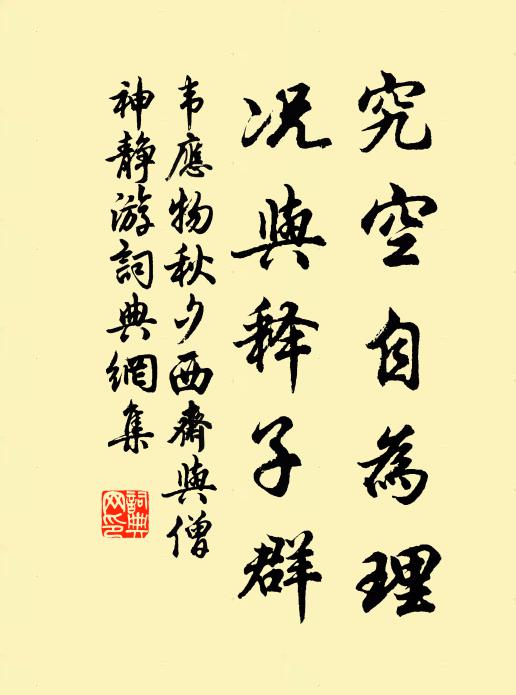 究空自為理
况與释子群
韦應物秋夕西齋與僧
神静游詞典網集
詞典
网印